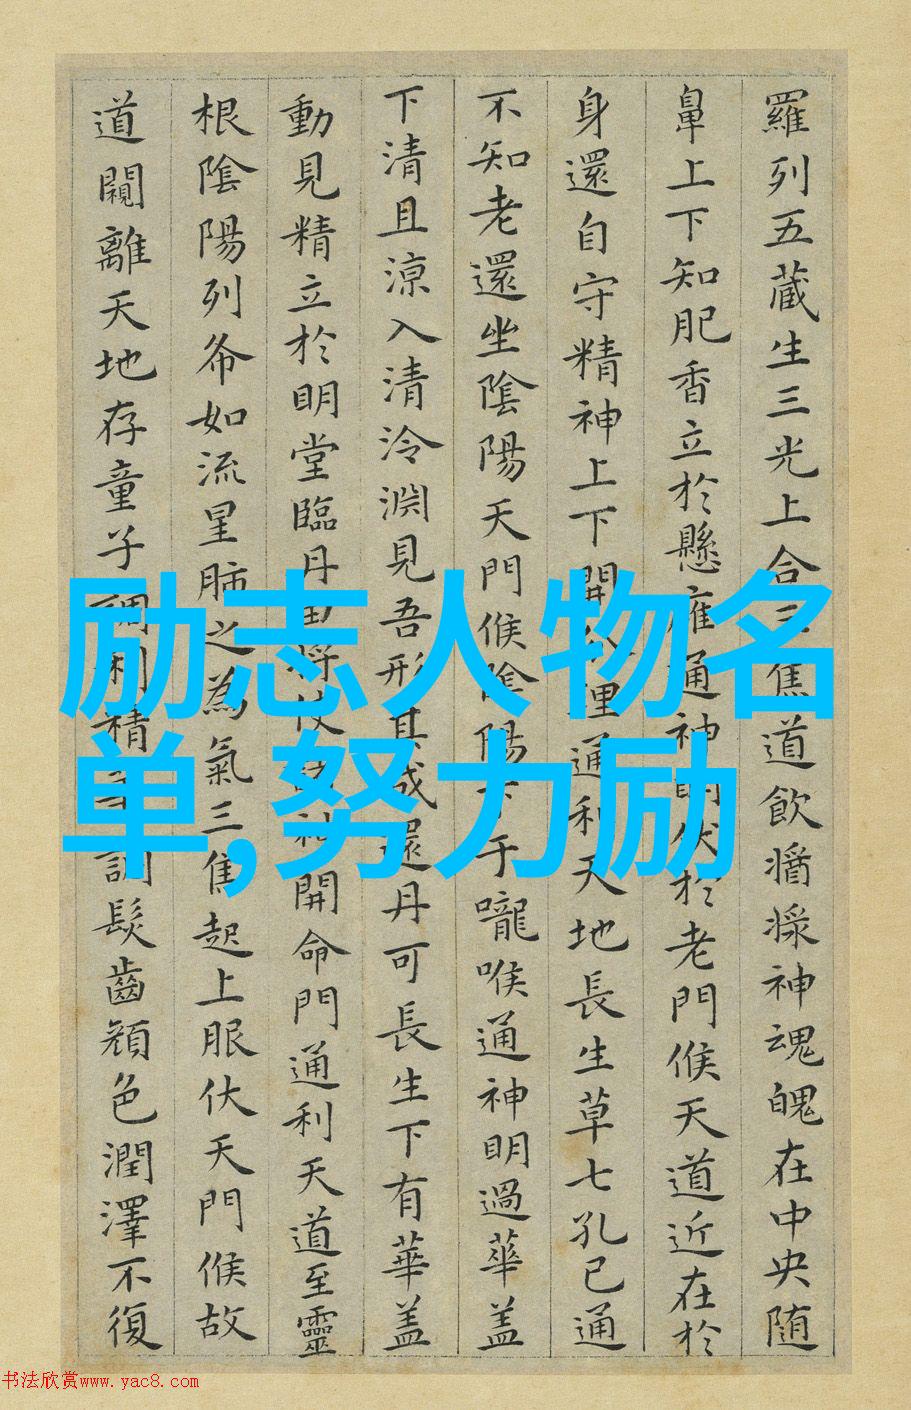 羅列五藏生三光上合三焦道飲醬漿神魂魄在中央随
鼻上下知肥香立於懸雍通神明伏於老門候天道近在於
身還自守精神上下開分理通利天地長生草七孔已通
不知老還坐陰陽天門候陰陽下于嚨喉通神明過華盖
下清且涼入清泠淵見吾形其成還丹可長生下有華盖
動見精立於明堂臨丹田将使諸神開命門通利天道至靈
根陰陽列布如流星肺之為氣三焦起上服伏天門候故
道闚離天地存童子調利精華調髮齒顔色潤澤不復
励志人物名
单,努力励
书法欣赏www.yac8.com